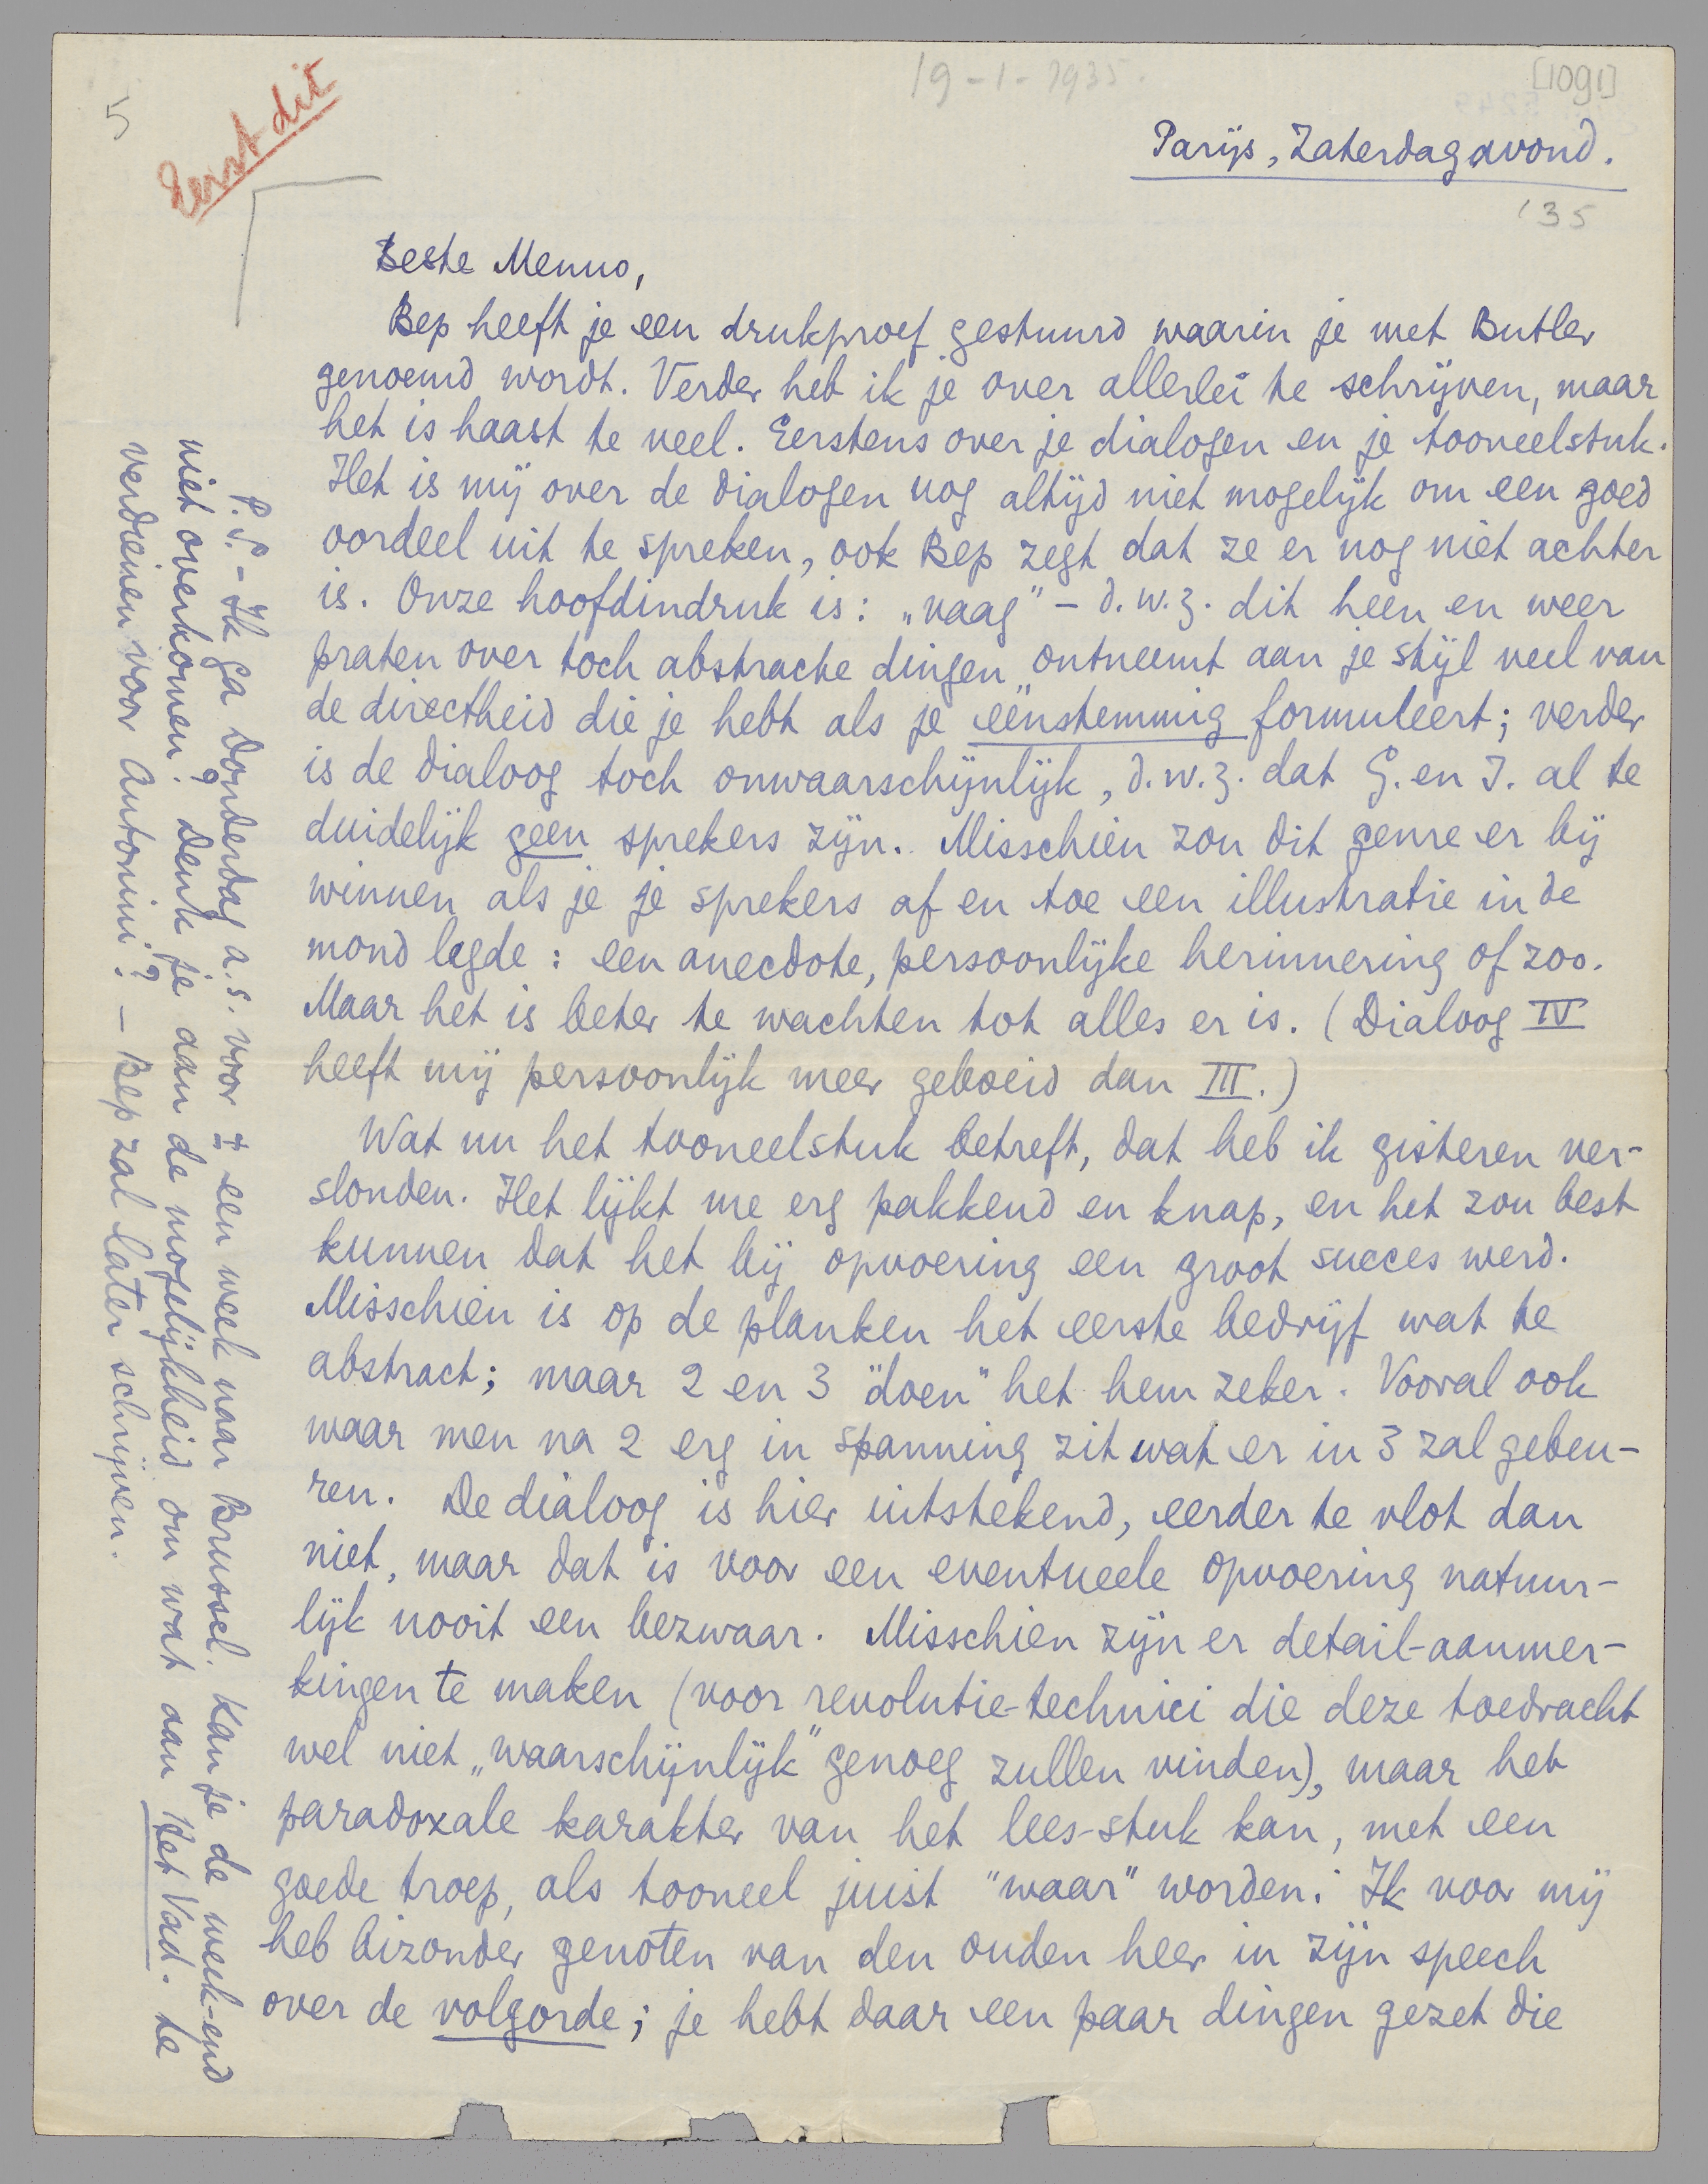 19-1-1935.
[1091]
5
Eerst dit
Parijs, Zaterdagavond.
'35
Beste Menno,
Bep heeft je een drukproef gestuurd waarin je met Butler
genoemd wordt. Verder heb ik je over allerlei te schrijven, maar
het is haast te veel. Eerstens over je dialogen en je tooneelstuk.
Het is mij over de dialogen nog altijd niet mogelijk om een goed
oordeel uit te spreken, ook Bep zegt dat ze er nog niet achter
is. Onze hoofdindruk is: „vaag” - d.w.z. dit heen en weer
praten over toch abstracte dingen ontneemt aan je stijl veel van
de directheid die je hebt als je eénstemmig formuleert; verder
is de dialoog toch onwaarschijnlijk, d.w.z. dat G. en I. al te
duidelijk geen sprekers zijn. Misschien zou dit genre er bij
winnen als je je sprekers af en toe een illustratie in de
mond legde: een anecdote, persoonlijke herinnering of zoo.
Maar het is beter te wachten tot alles er is. (Dialoog IV
heeft mij persoonlijk meer geboeid dan III.)
Wat nu het tooneelstuk betreft, dat heb ik gisteren ver-
slonden. Het lijkt me erg pakkend en knap, en het zou best
kunnen dat het bij opvoering een groot succes werd.
Misschien is op de planken het eerste bedrijf wat te
abstract; maar 2 en 3 "doen" het hem zeker. Vooral ook
waar men na 2 erg in spanning zit wat er in 3 zal gebeu-
ren. De dialoog is hier uitstekend, eerder te vlot dan
niet, maar dat is voor een eventueele opvoering natuur-
lijk nooit een bezwaar. Misschien zijn er detail-aanmer-
kingen te maken (voor revolutie-technici die deze toedracht
wel niet „waarschijnlijk” genoeg zullen vinden), maar het
paradoxale karakter van het lees-stuk kan, met een
goede troep, als tooneel juist "waar" worden. Ik voor mij
heb bizonder genoten van den ouden heer in zijn speech
over de volgorde; je hebt daar een paar dingen gezet die
P.S. - Ik ga Donderdag a.s. voor ± een week naar Brussel. Kan je de week-end
niet overkomen? Denk je aan de mogelijkheid om wat aan Het Vad. te
verdienen voor Antonini? - Bep zal later schrijven.